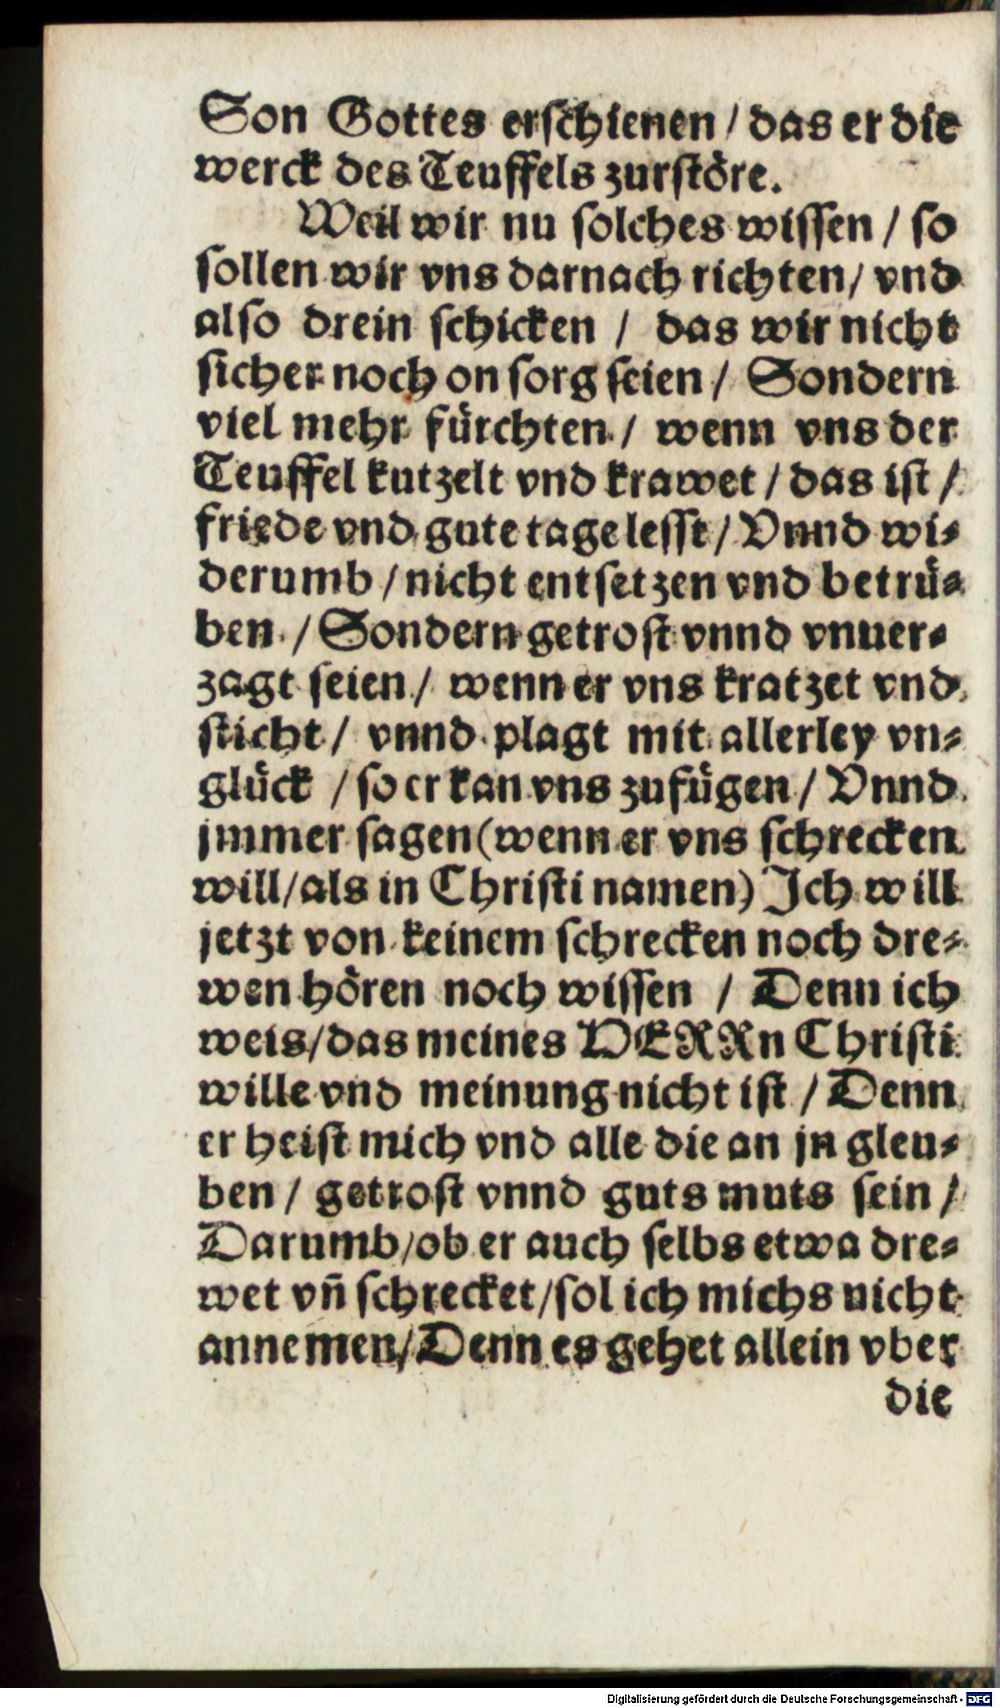 Son Gottes erschienen / das er die
werck des Teuffels zurstöre.
Weil wir nu solches wissen / so
sollen wir vns darnach richten / vnd
also drein schicken / das wir nicht
sicher noch on sorg seien / Sondern
viel mehr fürchten / wenn vns der
Teuffel kutzelt vnd krawet / das ist /
friede vnd gute tage lesst / Vnnd wi-
derumb / nicht entsetzen vnd betrü-
ben / Sondern getrost vnnd vnuer-
zagt seien / wenn er vns kratzet vnd
sticht / vnnd plagt mit allerley vn-
glück / so er kan vns zufügen / Vnnd
jmmer sagen (wenn er vns schrecken
will / als in Christi namen) Ich will
jetzt von keinem schrecken noch dre-
wen hören noch wissen / Denn ich
weis / das meines HERRn Christi
wille vnd meinung nicht ist / Denn
er heist mich vnd alle die an jn gleu-
ben / getrost vnnd guts muts sein /
Darumb / ob er auch selbs etwa dre-
wet vñ schrecket / sol ich michs nicht
annemen / Denn es gehet allein vber
die
Digitalisierung gefördert durch die Deutsche Forschungsgemeinschaft - DFG